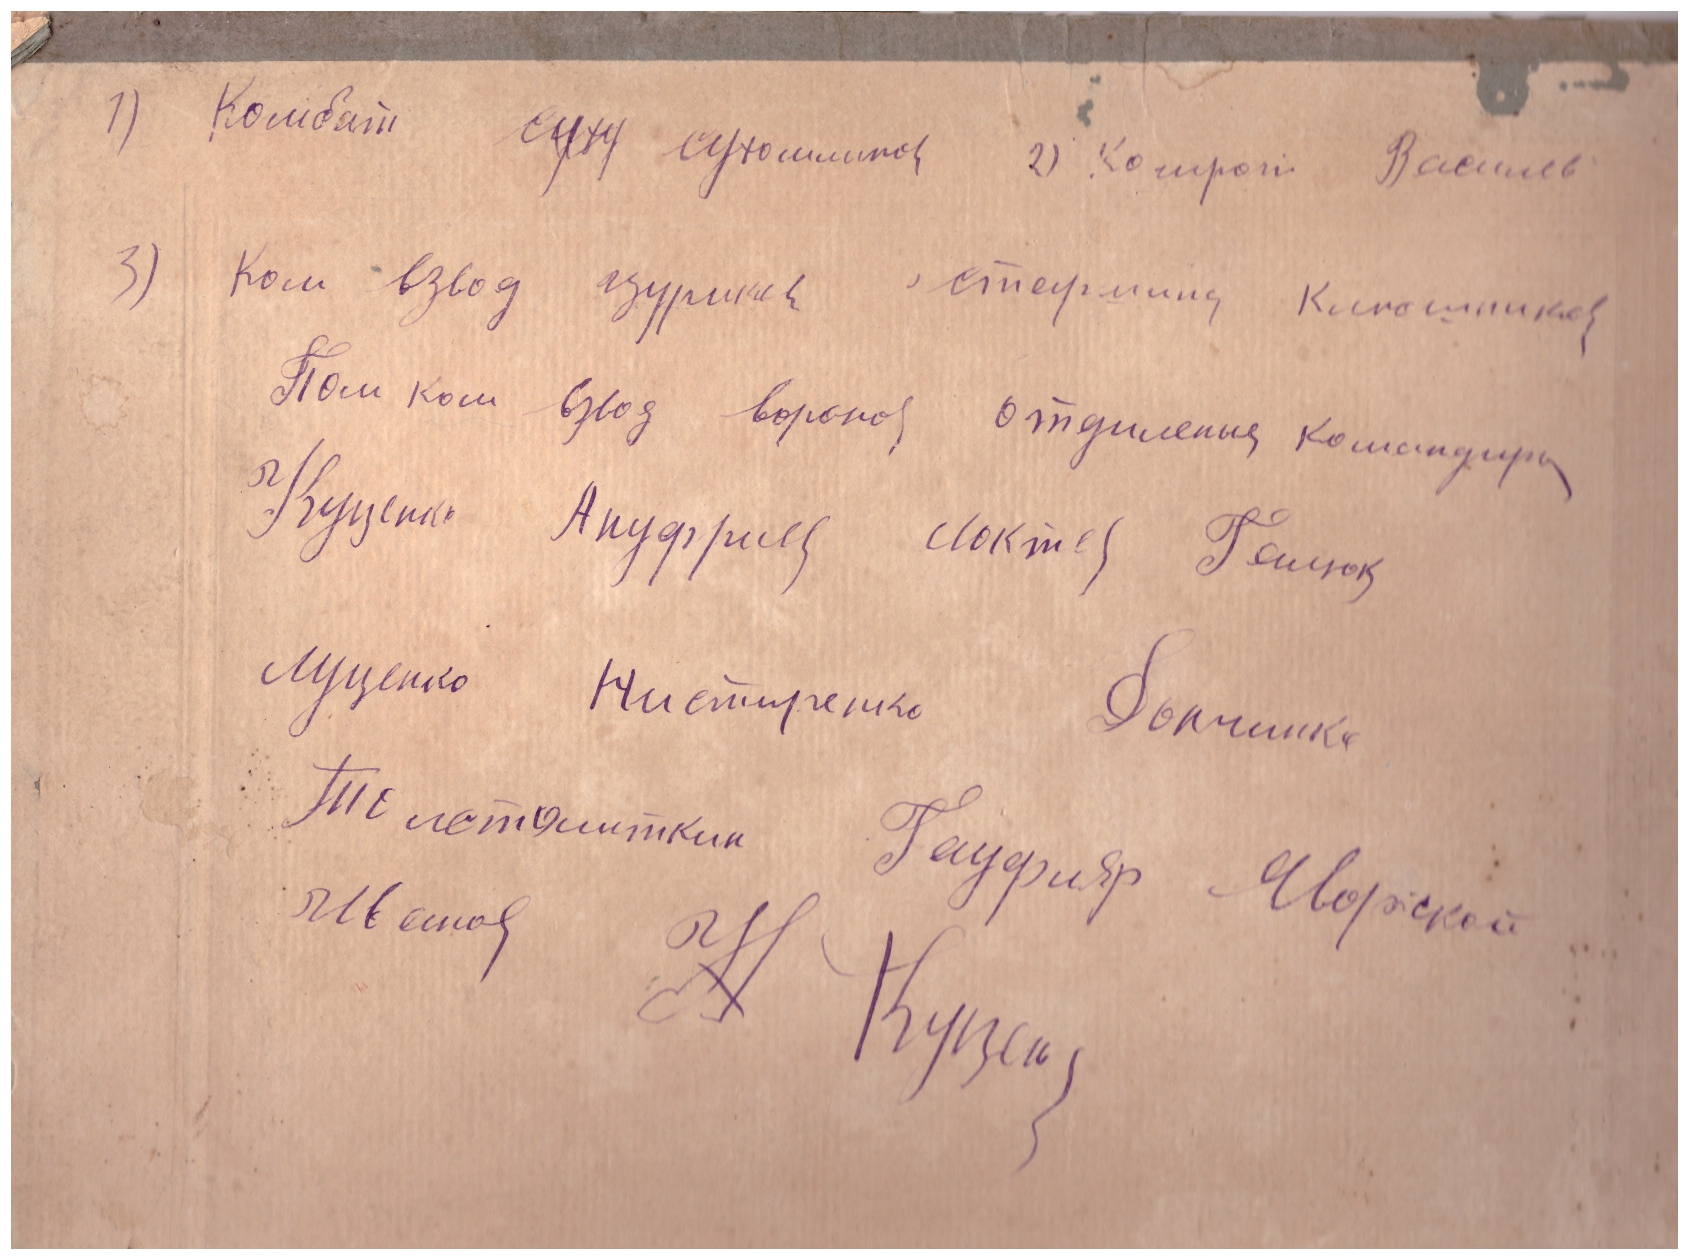 1) Комбат Сухомлинов 2) Комроты Василев
3) Ком взвод Цуриков старшина Клюшников
Пом ком взвод Воронов отдиления командиры
Куценко Ануфриев Локтев Галюк
Луценко Нистиренко Дончинко
Гауфияр Яворской
Иванов
Куцен